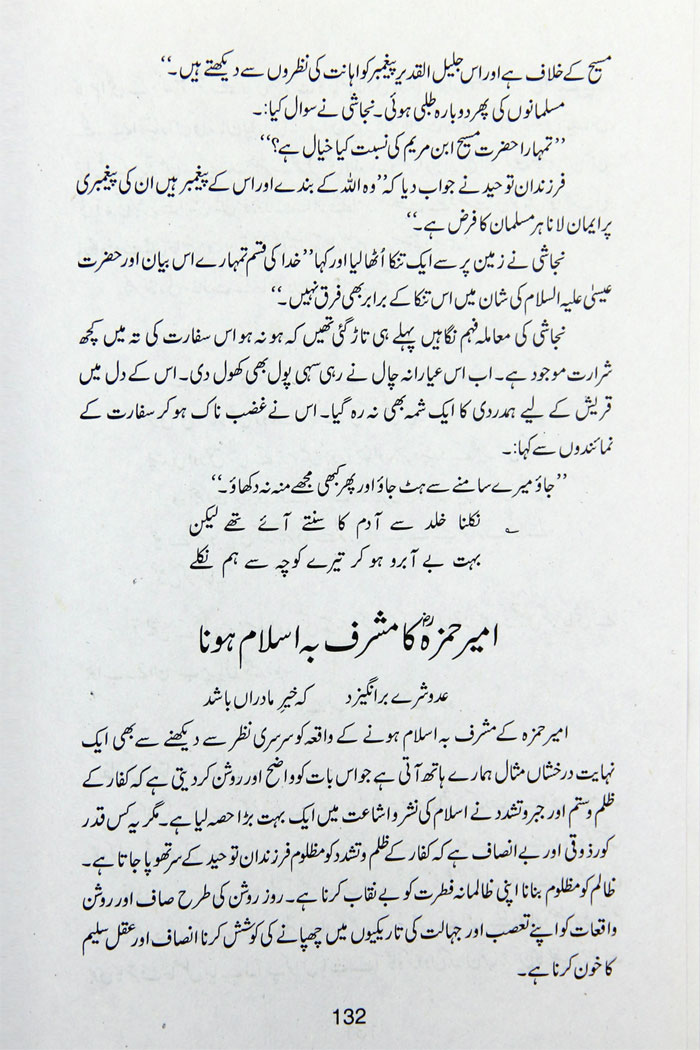 مسیح کے خلاف ہے اور اس جلیل القدیر پیغمبر کو اہانت کی نظروں سے دیکھتے ہیں۔‘‘
مسلمانوں کی پھر دوبارہ طلبی ہوئی۔ نجاشی نے سوال کیا:۔
’’تمہارا حضرت مسیح ابن مریم کی نسبت کیا خیال ہے؟‘‘
فرزندان توحید نے جواب دیا کہ ’’وہ اللہ کے بندے اور اس کے پیغمبر ہیں ان کی پیغمبری
پر ایمان لانا ہر مسلمان کا فرض ہے۔‘‘
نجاشی نے زمین پر سے ایک تنکا اُٹھا لیا اور کہا ’’خدا کی قسم تمہارے اس بیان اور حضرت
عیسیٰ علیہ السلام کی شان میں اس تنکا کے برابر بھی فرق نہیں۔‘‘
نجاشی کی معاملہ فہم نگاہیں پہلے ہی تاڑ گئی تھیں کہ ہو نہ ہو اس سفارت کی تہ میں کچھ
شرارت موجود ہے۔ اب اس عیارانہ چال نے رہی سہی پول بھی کھول دی۔ اس کے دل میں
قریش کے لیے ہمدردی کا ایک شمہ بھی نہ رہ گیا۔ اس نے غضب ناک ہو کر سفارت کے
نمائندوں سے کہا:۔
’’جاؤ میرے سامنے سے ہٹ جاؤ اور پھر کبھی مجھے منہ نہ دکھاؤ۔‘‘
؎ نکلنا خلد سے آدم کا سنتے آئے تھے لیکن
بہت بے آبرو ہو کر تیرے کوچہ سے ہم نکلے
امیر حمزہؓ کا مشرف بہ اسلام ہونا
عدو شرے برانگیزد کہ خیرِ مادراں باشد
امیر حمزہ کے مشرف بہ اسلام ہونے کے واقعہ کو سرسری نظر سے دیکھنے سے بھی ایک
نہایت درخشاں مثال ہمارے ہاتھ آتی ہے جو اس بات کو واضح اور روشن کر دیتی ہے کہ کفار کے
ظلم و ستم اور جبر و تشدد نے اسلام کی نشر و اشاعت میں ایک بہت بڑا حصہ لیا ہے۔ مگر یہ کس قدر
کور ذوقی اور بے انصاف ہے کہ کفار کے ظلم و تشدد کو مظلوم فرزندان توحید کے سر تھوپا جاتا ہے۔
ظالم کو مظلوم بنانا اپنی ظالمانہ فطرت کو بے نقاب کرنا ہے۔ روز روشن کی طرح صاف اور روشن
واقعات کو اپنے تعصب اور جہالت کی تاریکیوں میں چھپانے کی کوشش کرنا انصاف اور عقل سلیم
کا خون کرنا ہے۔
132